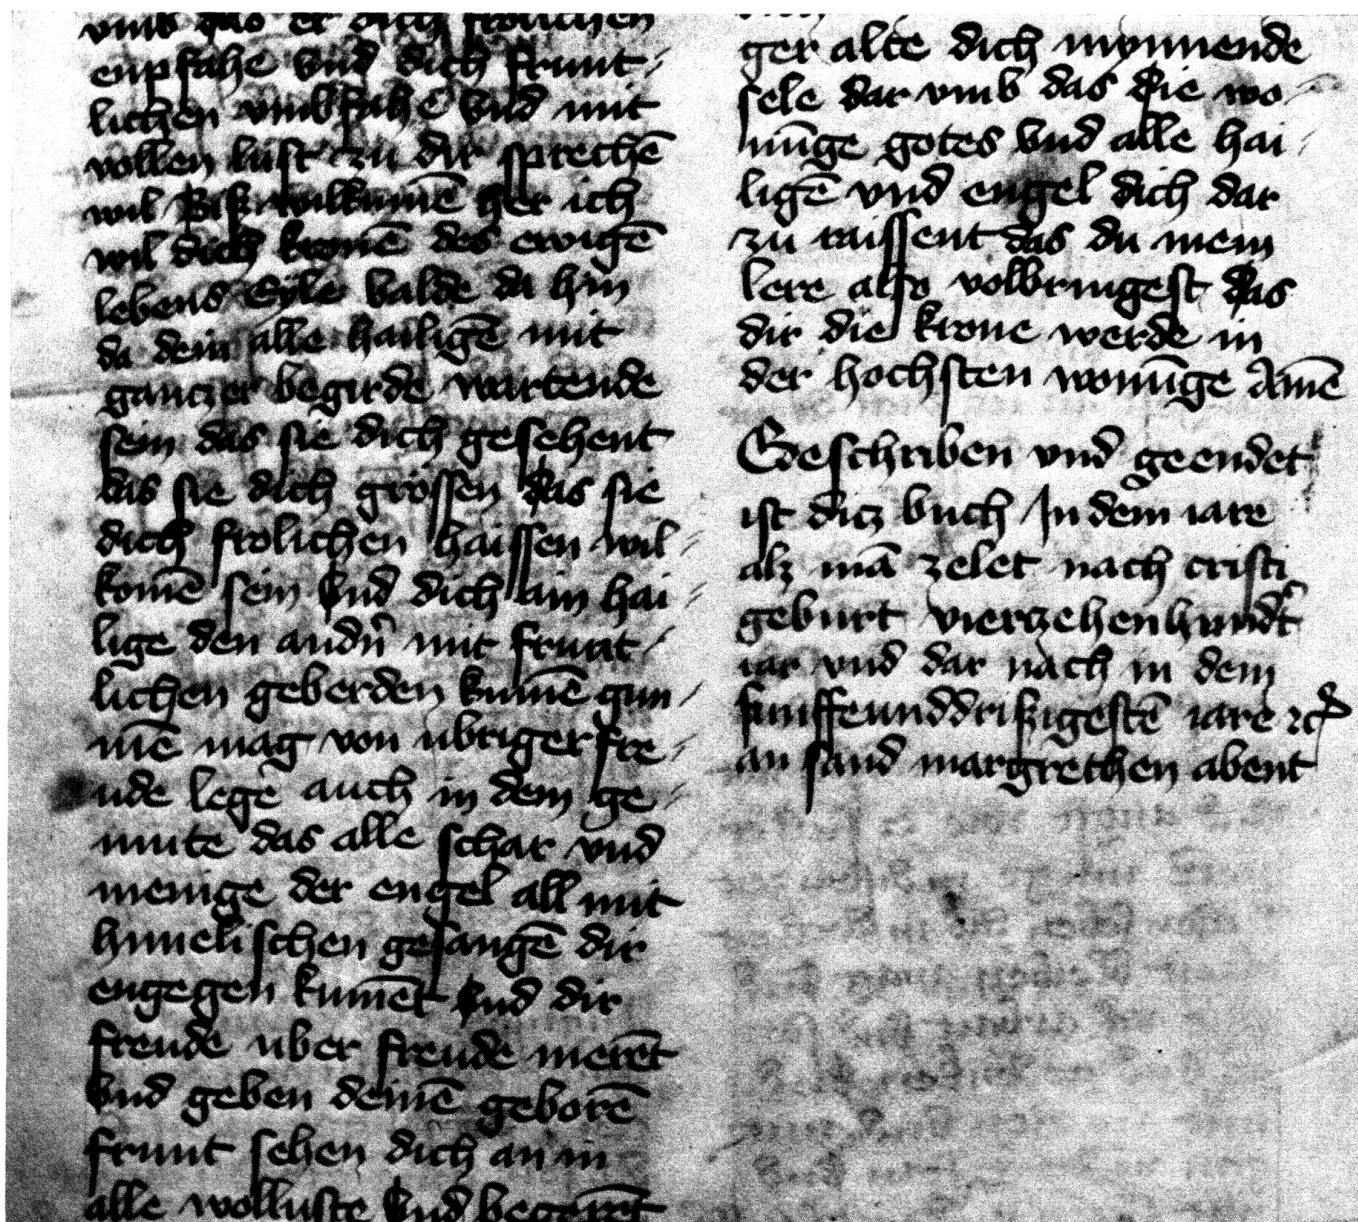 vmb das er dich frolichen
enpfahe vnd dich frunt-
lichen vmbfahe vnd mit
vollen lust zu dir sprechē
wil Bis wilkumē her ich
wil dich kronē des ewigē
lebens Eyle balde da hin
da dein alle hailigē mit
gantzer begirde wartende
sein das sie dich gesehent
das sie dich grössen das sie
dich frolichen haissen wil-
komē sein vnd dich ain hai-
lige den andn̄ mit frunt-
lichen geberden kumē
mē mag von ubriger fre-
ude lege auch in dem ge-
mute das alle schar vnd
menige der engel all mit
himelischen gesangē dir
engegen kumēt vnd dir
freude uber freude merēt
vnd geben deinē geborē
frunt sehen dich an in
alle wolluste vnd begerēt
ger alte dich mynnende
sele dar vmb das die wo-
nūge gotes vnd alle hai-
ligē vnd engel dich dar
zu raissent das du mein
lere also volbringest das
dir die krone werde in
der hochsten wonūge Amē
Geschriben vnd geendet
ist ditz buch In dem iare
alz mā zelet nach cristi
geburt vierzehenhundt
iar vnd dar nach in dem
funffeunddrißigestē iare ꝛc
an sand margrethen abent